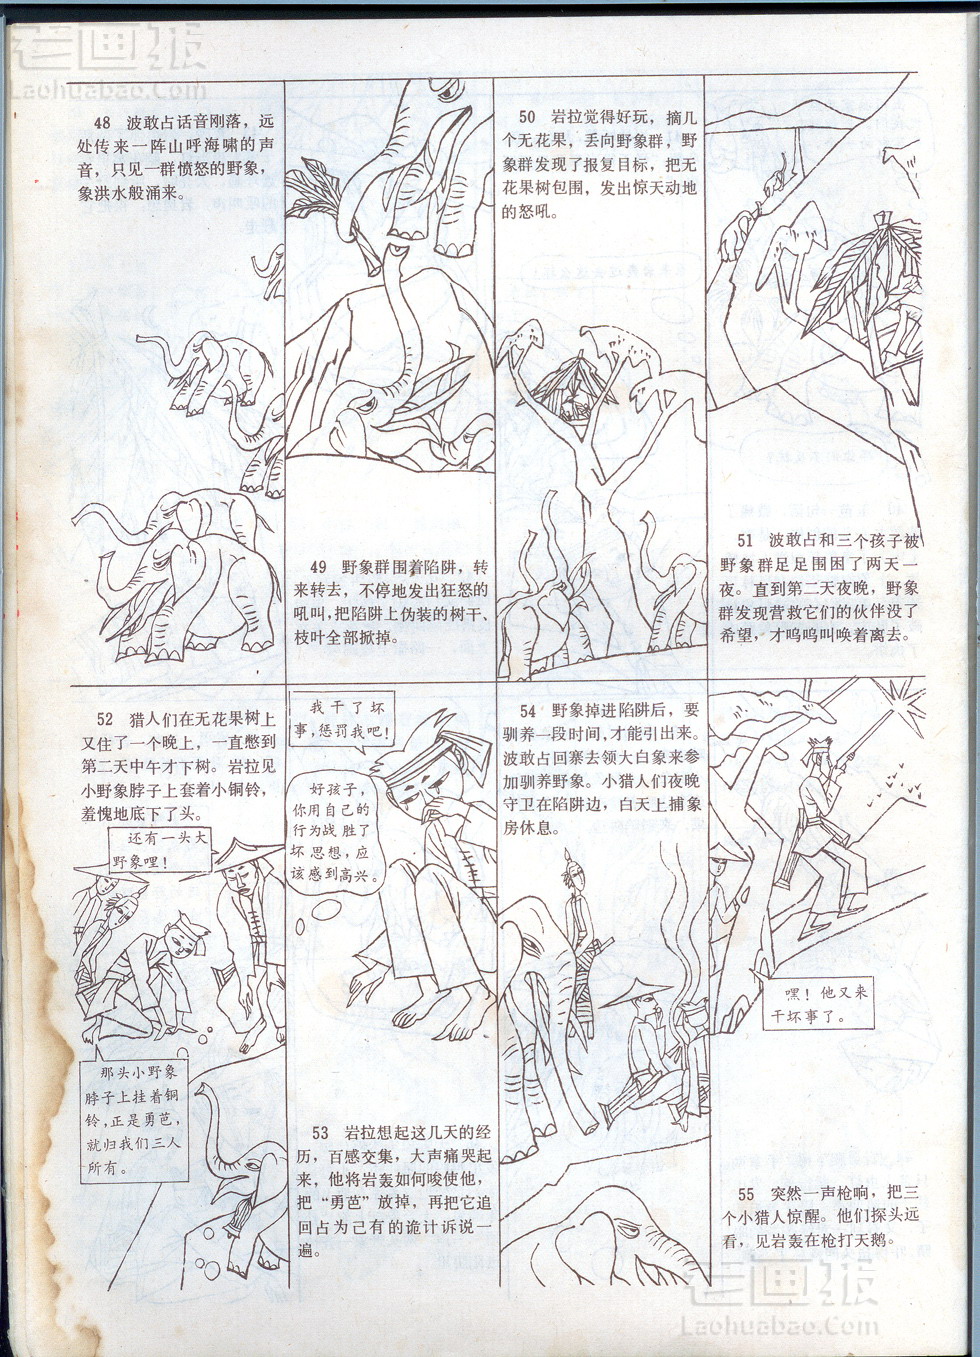 老画报
Laohuabao.Com
48 波敢占话音刚落，远
处传来一阵山呼海啸的声
音，只见一群愤怒的野象，
象洪水般涌来。
49 野象群围着陷阱，转
来转去，不停地发出狂怒的
吼叫，把陷阱上伪装的树干、
枝叶全部掀掉。
50 岩拉觉得好玩，摘几
个无花果，丢向野象群，野
象群发现了报复目标，把无
花果树包围，发出惊天动地
的怒吼。
51 波敢占和三个孩子被
野象群足足围困了两天一
夜。直到第二天夜晚，野象
群发现营救它们的伙伴没了
希望，才呜呜叫唤着离去。
52 猎人们在无花果树上
又住了一个晚上，一直憋到
第二天中午才下树。岩拉见
小野象脖子上套着小铜铃，
羞愧地底下了头。
还有一头大
野象哩！
那头小野象
脖子上挂着铜
铃，正是勇芭，
就归我们三人
所有。
我干了坏
事，惩罚我吧！
好孩子，
你用自己的
行为战胜了
坏思想，应
该感到高兴。
53 岩拉想起这几天的经
历，百感交集，大声痛哭起
来，他将岩轰如何唆使他，
把“勇芭”放掉，再把它追
回占为己有的诡计诉说一
遍。
54 野象掉进陷阱后，要
驯养一段时间，才能引出来。
波敢占回寨去领大白象来参
加驯养野象。小猎人们夜晚
守卫在陷阱边，白天上捕象
房休息。
嘿！他又来
干坏事了。
55 突然一声枪响，把三
个小猎人惊醒。他们探头远
看，见岩轰在枪打天鹅。
老画报
Laohuabao.Com